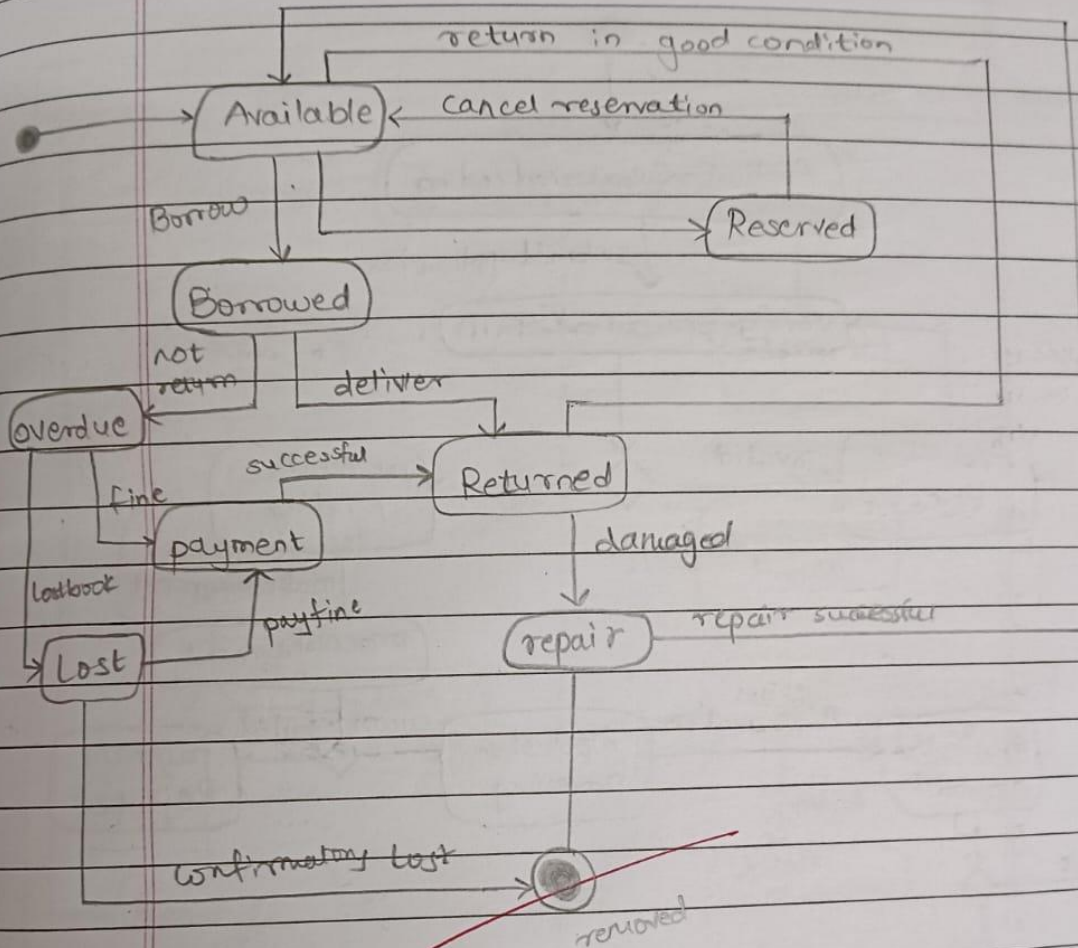 return in good condition
Available
cancel reservation
Borrow
Reserved
Borrowed
not
return
deliver
overdue
successful
Returned
fine
payment
damaged
lostbook
payfine
repair
repair successful
Lost
Lost
removed